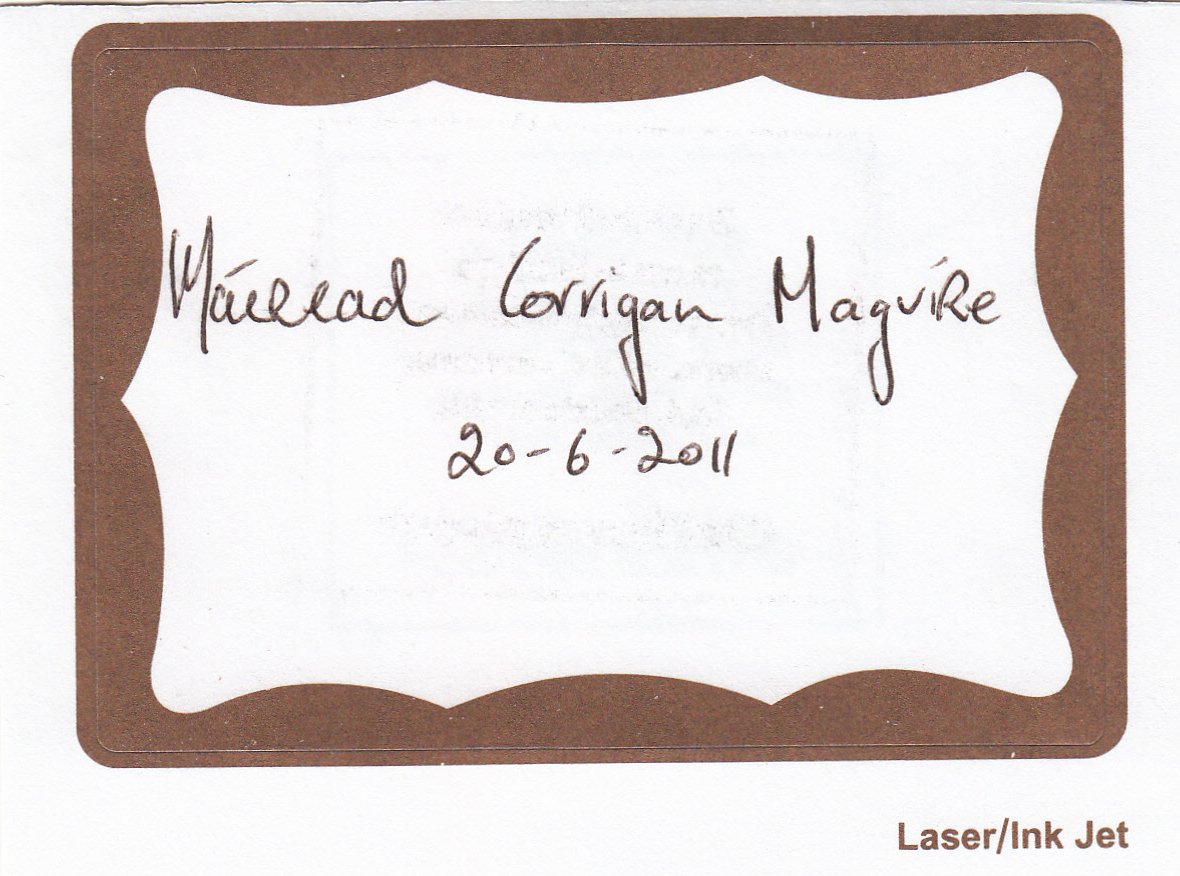 Máiread Corrigan Maguire
20-6-2011
Laser/Ink Jet